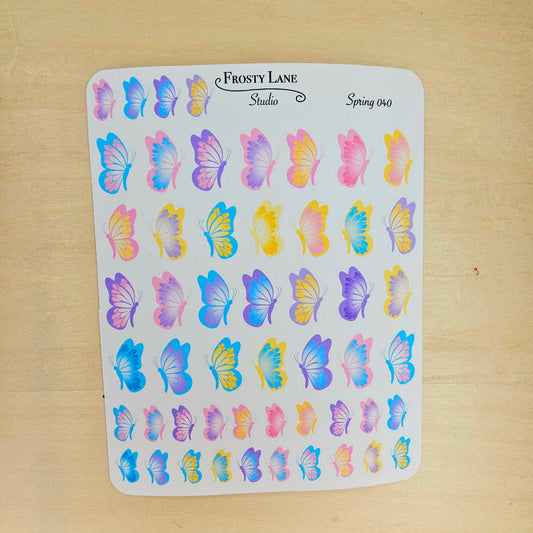 Frosty Lane
Studio
Spring 040